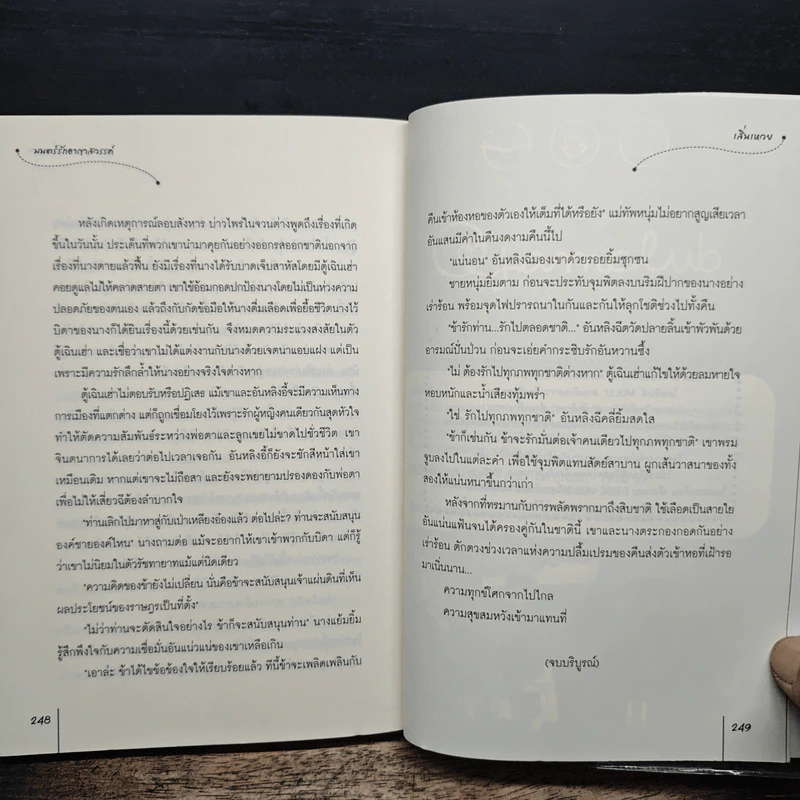 มนตร์รักอาญาสวรรค์
หลังเกิดเหตุการณ์ลอบสังหาร บ่าวไพร่ในจวนต่างพูดถึงเรื่องที่เกิด
ขึ้นในวันนั้น ประเด็นที่พวกเขานำมาคุยกันอย่างออกรสออกชาตินอกจาก
เรื่องที่นางตายแล้วฟื้น ยังมีเรื่องที่นางได้รับบาดเจ็บสาหัสโดยมีตู้เฉินเฮ่า
คอยดูแลไม่ให้คลาดสายตา เขาใช้อ้อมกอดปกป้องนางโดยไม่เป็นห่วงความ
ปลอดภัยของตนเอง แล้วถึงกับกัดข้อมือให้นางดื่มเลือดเพื่อยื้อชีวิตนางไว้
บิดาของนางก็ได้ยินเรื่องนี้ด้วยเช่นกัน จึงหมดความระแวงสงสัยในตัว
ตู้เฉินเฮ่า และเชื่อว่าเขาไม่ได้แต่งงานกับนางด้วยเจตนาแอบแฝง แต่เป็น
เพราะมีความรักลึกล้ำให้นางอย่างจริงใจต่างหาก
ตู้เฉินเฮ่าไม่ตอบรับหรือปฏิเสธ แม้เขาและอันหลิงอี้จะมีความเห็นทาง
การเมืองที่แตกต่าง แต่ก็ถูกเชื่อมโยงไว้เพราะรักผู้หญิงคนเดียวกันสุดหัวใจ
ทำให้ตัดความสัมพันธ์ระหว่างพ่อตาและลูกเขยไม่ขาดไปชั่วชีวิต เขา
จินตนาการได้เลยว่าต่อไปเวลาเจอกัน อันหลิงอี้ก็ยังจะชักสีหน้าใส่เขา
เหมือนเดิม หากแต่เขาจะไม่ถือสา และยังจะพยายามปรองดองกับพ่อตา
เพื่อไม่ให้เสี่ยวฉีต้องลำบากใจ
"ท่านเลิกไปมาหาสู่กับเป่าเหลียงอ๋องแล้ว ต่อไปล่ะ? ท่านจะสนับสนุน
องค์ชายองค์ไหน" นางถามต่อ แม้จะอยากให้เขาเข้าพวกกับบิดา แต่ก็รู้
ว่าเขาไม่นิยมในตัวรัชทายาทแม้แต่นิดเดียว
"ความคิดของข้ายังไม่เปลี่ยน นั่นคือข้าจะสนับสนุนเจ้าแผ่นดินที่เห็น
ผลประโยชน์ของราษฎรเป็นที่ตั้ง"
"ไม่ว่าท่านจะตัดสินใจอย่างไร ข้าก็จะสนับสนุนท่าน" นางแย้มยิ้ม
รู้สึกพึงใจกับความเชื่อมั่นอันแน่วแน่ของเขาเหลือเกิน
"เอาล่ะ ข้าได้ไขข้อข้องใจให้เรียบร้อยแล้ว ทีนี้ข้าจะเพลิดเพลินกับ
248
เสิ่นเหวย
คืนเข้าห้องหอของตัวเองให้เต็มที่ได้หรือยัง" แม่ทัพหนุ่มไม่อยากสูญเสียเวลา
อันแสนมีค่าในคืนงดงามคืนนี้ไป
"แน่นอน" อันหลิงฉีมองเขาด้วยรอยยิ้มซุกซน
ชายหนุ่มยิ้มตาม ก่อนจะประทับจุมพิตลงบนริมฝีปากของนางอย่าง
เร่าร้อน พร้อมจุดไฟปรารถนาในกันและกันให้ลุกโชติช่วงไปทั้งคืน
"ข้ารักท่าน...รักไปตลอดชาติ..." อันหลิงฉีตวัดปลายลิ้นเข้าพัวพันด้วย
อารมณ์ปั่นป่วน ก่อนจะเอ่ยคำกระซิบรักอันหวานซึ้ง
"ไม่ ต้องรักไปทุกภพทุกชาติต่างหาก" ตู้เฉินเฮ่าแก้ไขให้ด้วยลมหายใจ
หอบหนักและน้ำเสียงทุ้มพร่า
"ใช่ รักไปทุกภพทุกชาติ" อันหลิงฉีคลี่ยิ้มสดใส
"ข้าก็เช่นกัน ข้าจะรักมั่นต่อเจ้าคนเดียวไปทุกภพทุกชาติ" เขาพรม
จูบลงไปในแต่ละคำ เพื่อใช้จุมพิตแทนสัตย์สาบาน ผูกเส้นวาสนาของทั้ง
สองให้แน่นหนาขึ้นกว่าเก่า
หลังจากที่ทรมานกับการพลัดพรากมาถึงสิบชาติ ใช้เลือดเป็นสายใย
อันแน่นแฟ้นจนได้ครองคู่กันในชาตินี้ เขาและนางตระกองกอดกันอย่าง
เร่าร้อน ตักตวงช่วงเวลาแห่งความปลื้มเปรมของคืนส่งตัวเข้าหอที่เฝ้ารอ
มาเนิ่นนาน...
ความทุกข์โศกจากไปไกล
ความสุขสมหวังเข้ามาแทนที่
(จบบริบูรณ์)
249